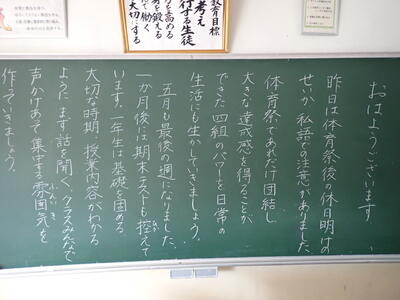 教育目標
考え
行する生徒
を高める
で働く
身を鍛える
大切にする
おはようございます
昨日は体育祭後の休日明けの
せいか、私語での注意がありました。
体育祭であれだけ団結し、
大きな達成感を得ることが
できた四組のパワーを日常の
生活にも生かしていきましょう。
五月も最後の週になりました。
一か月後には期末テストも控えて
います。一年生は基礎を固める
大切な時期。授業内容がわかる
ようにまず話を聞く、クラスみんなで
声かけあって集中する雰囲気を
ふんいき
作っていきましょう。